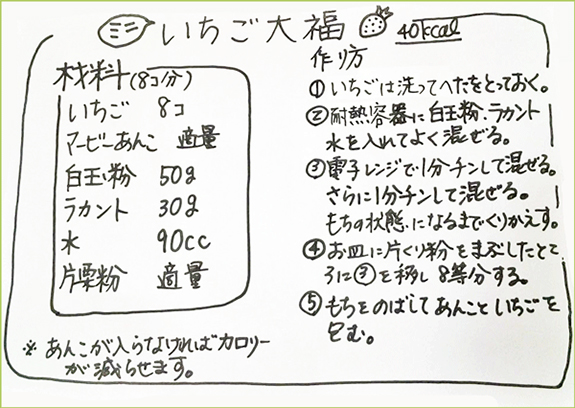 ミニ いちご大福 40kcal
材料(8コ分)
いちご 8コ
マービーあんこ 適量
白玉粉 50g
ラカント 30g
水 90cc
片栗粉 適量
※ あんこが入らなければカロリー
が減らせます。
作り方
① いちごは洗ってへたをとっておく。
② 耐熱容器に白玉粉、ラカント
水を入れてよく混ぜる。
③ 電子レンジで1分チンして混ぜる。
さらに1分チンして混ぜる。
もちの状態になるまでくりかえす。
④ お皿に片くり粉をまぶしたとこ
ろに③を移し8等分する。
⑤ もちをのばしてあんこといちごを
包む。